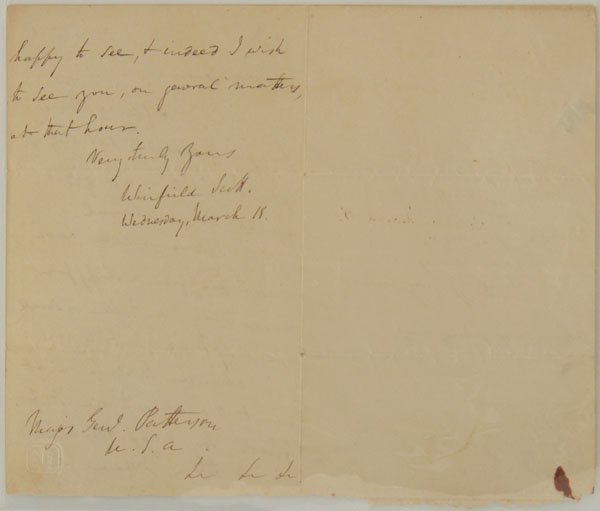 happy to see, & indeed I wish
to see you, on general matters,
at that hour.
Very truly Yours
Winfield Scott.
Wednesday, March 18.
Major Genl. Patterson
U. S. A.